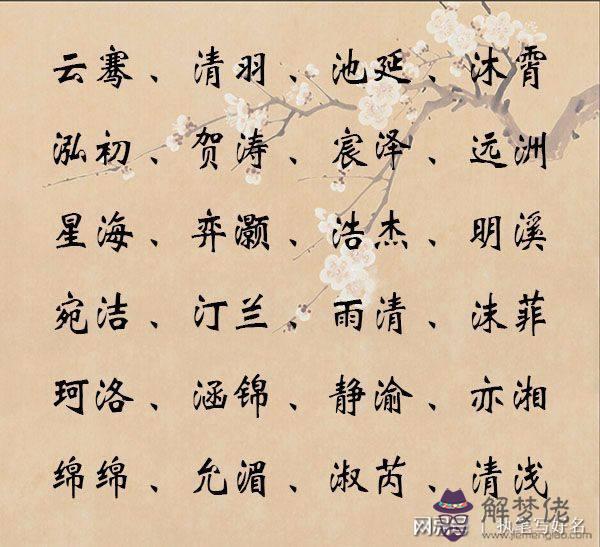 云骞、清羽、池延、沐霄
泓初、贺涛、宸泽、远洲
星海、弈灏、浩杰、明溪
宛洁、汀兰、雨清、沫菲
珂洛、涵锦、静渝、亦湘
绵绵、允湄、淑芮、清浅
解梦佬
www.jiemenglao.com
网易号 | 执笔写好名